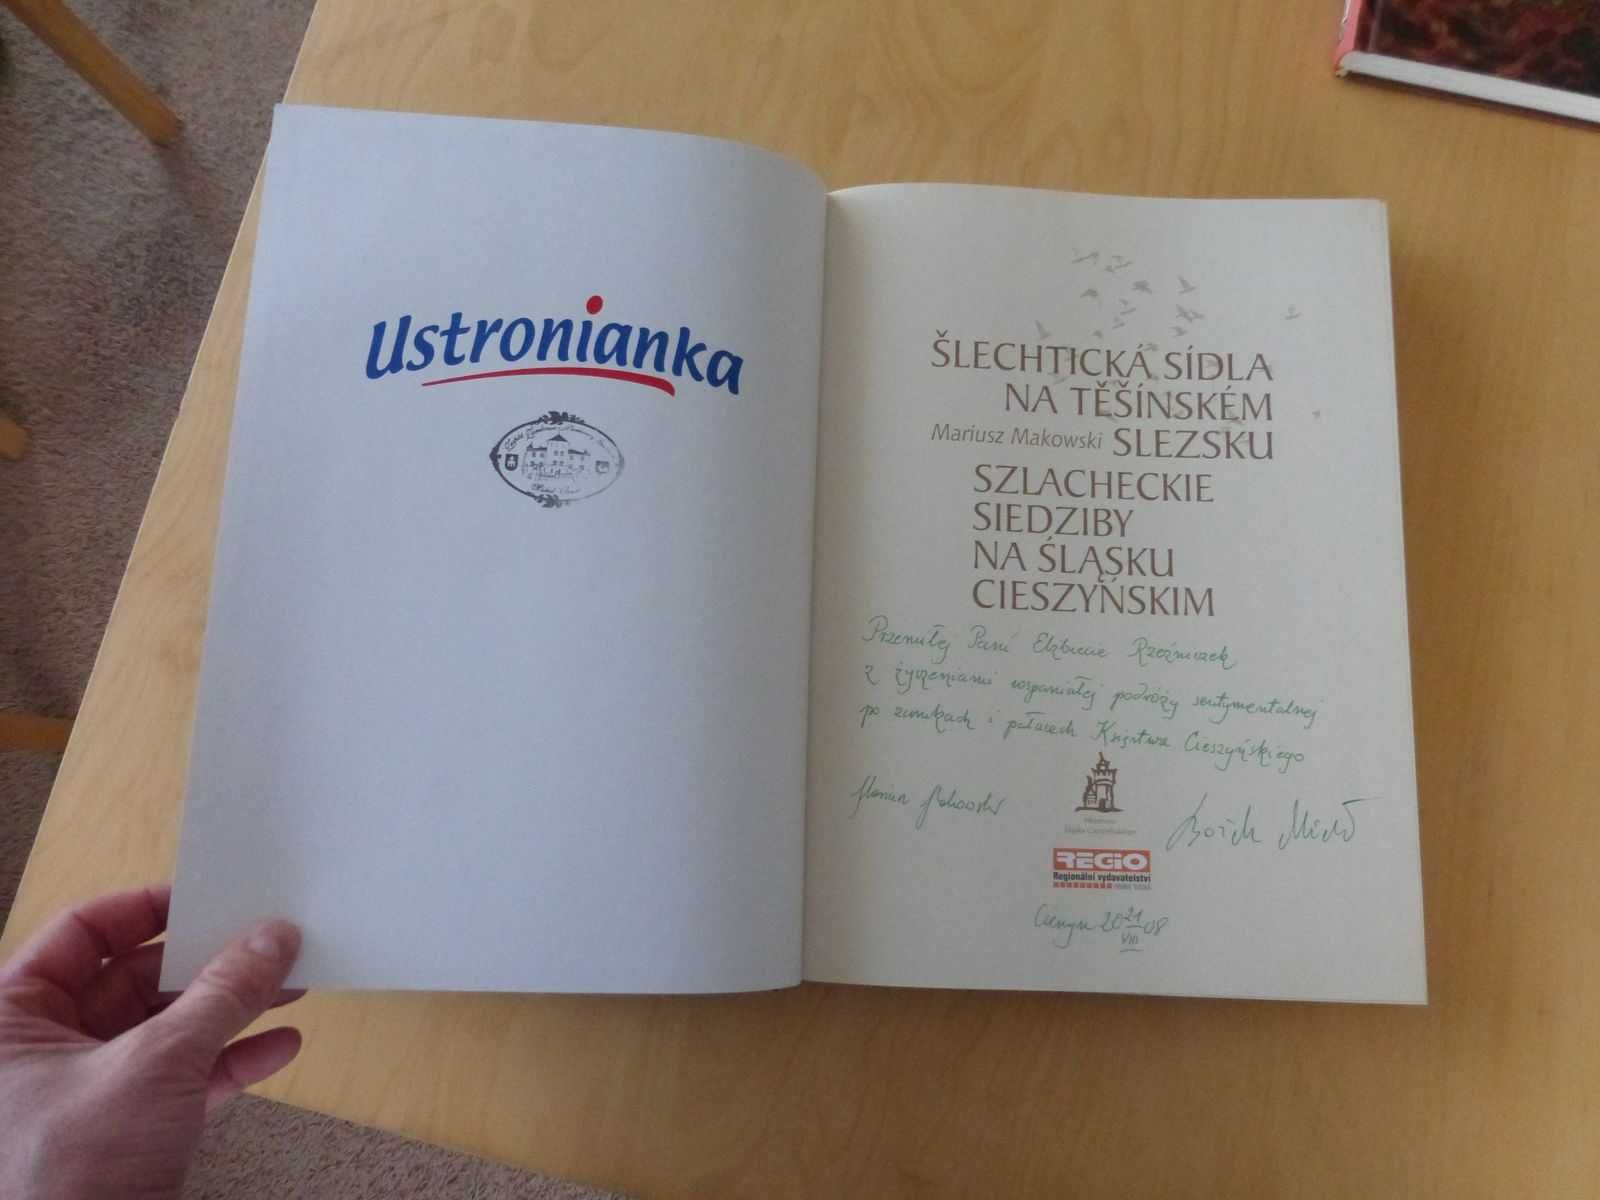 Ustronianka
ŠLECHTICKÁ SÍDLA
NA TĚŠÍNSKÉM
Mariusz Makowski SLEZSKU
SZLACHECKIE
SIEDZIBY
NA ŚLĄSKU
CIESZYŃSKIM
Przemiłej Pani Elżbiecie Rzeźniczek
z życzeniami wspaniałej podróży sentymentalnej
po zamkach i pałacach Księstwa Cieszyńskiego
Mariusz Makowski
Muzeum
Śląska Cieszyńskiego
REGIO
Regionální vydavatelství
Cieszyn 20 21/VIII 08